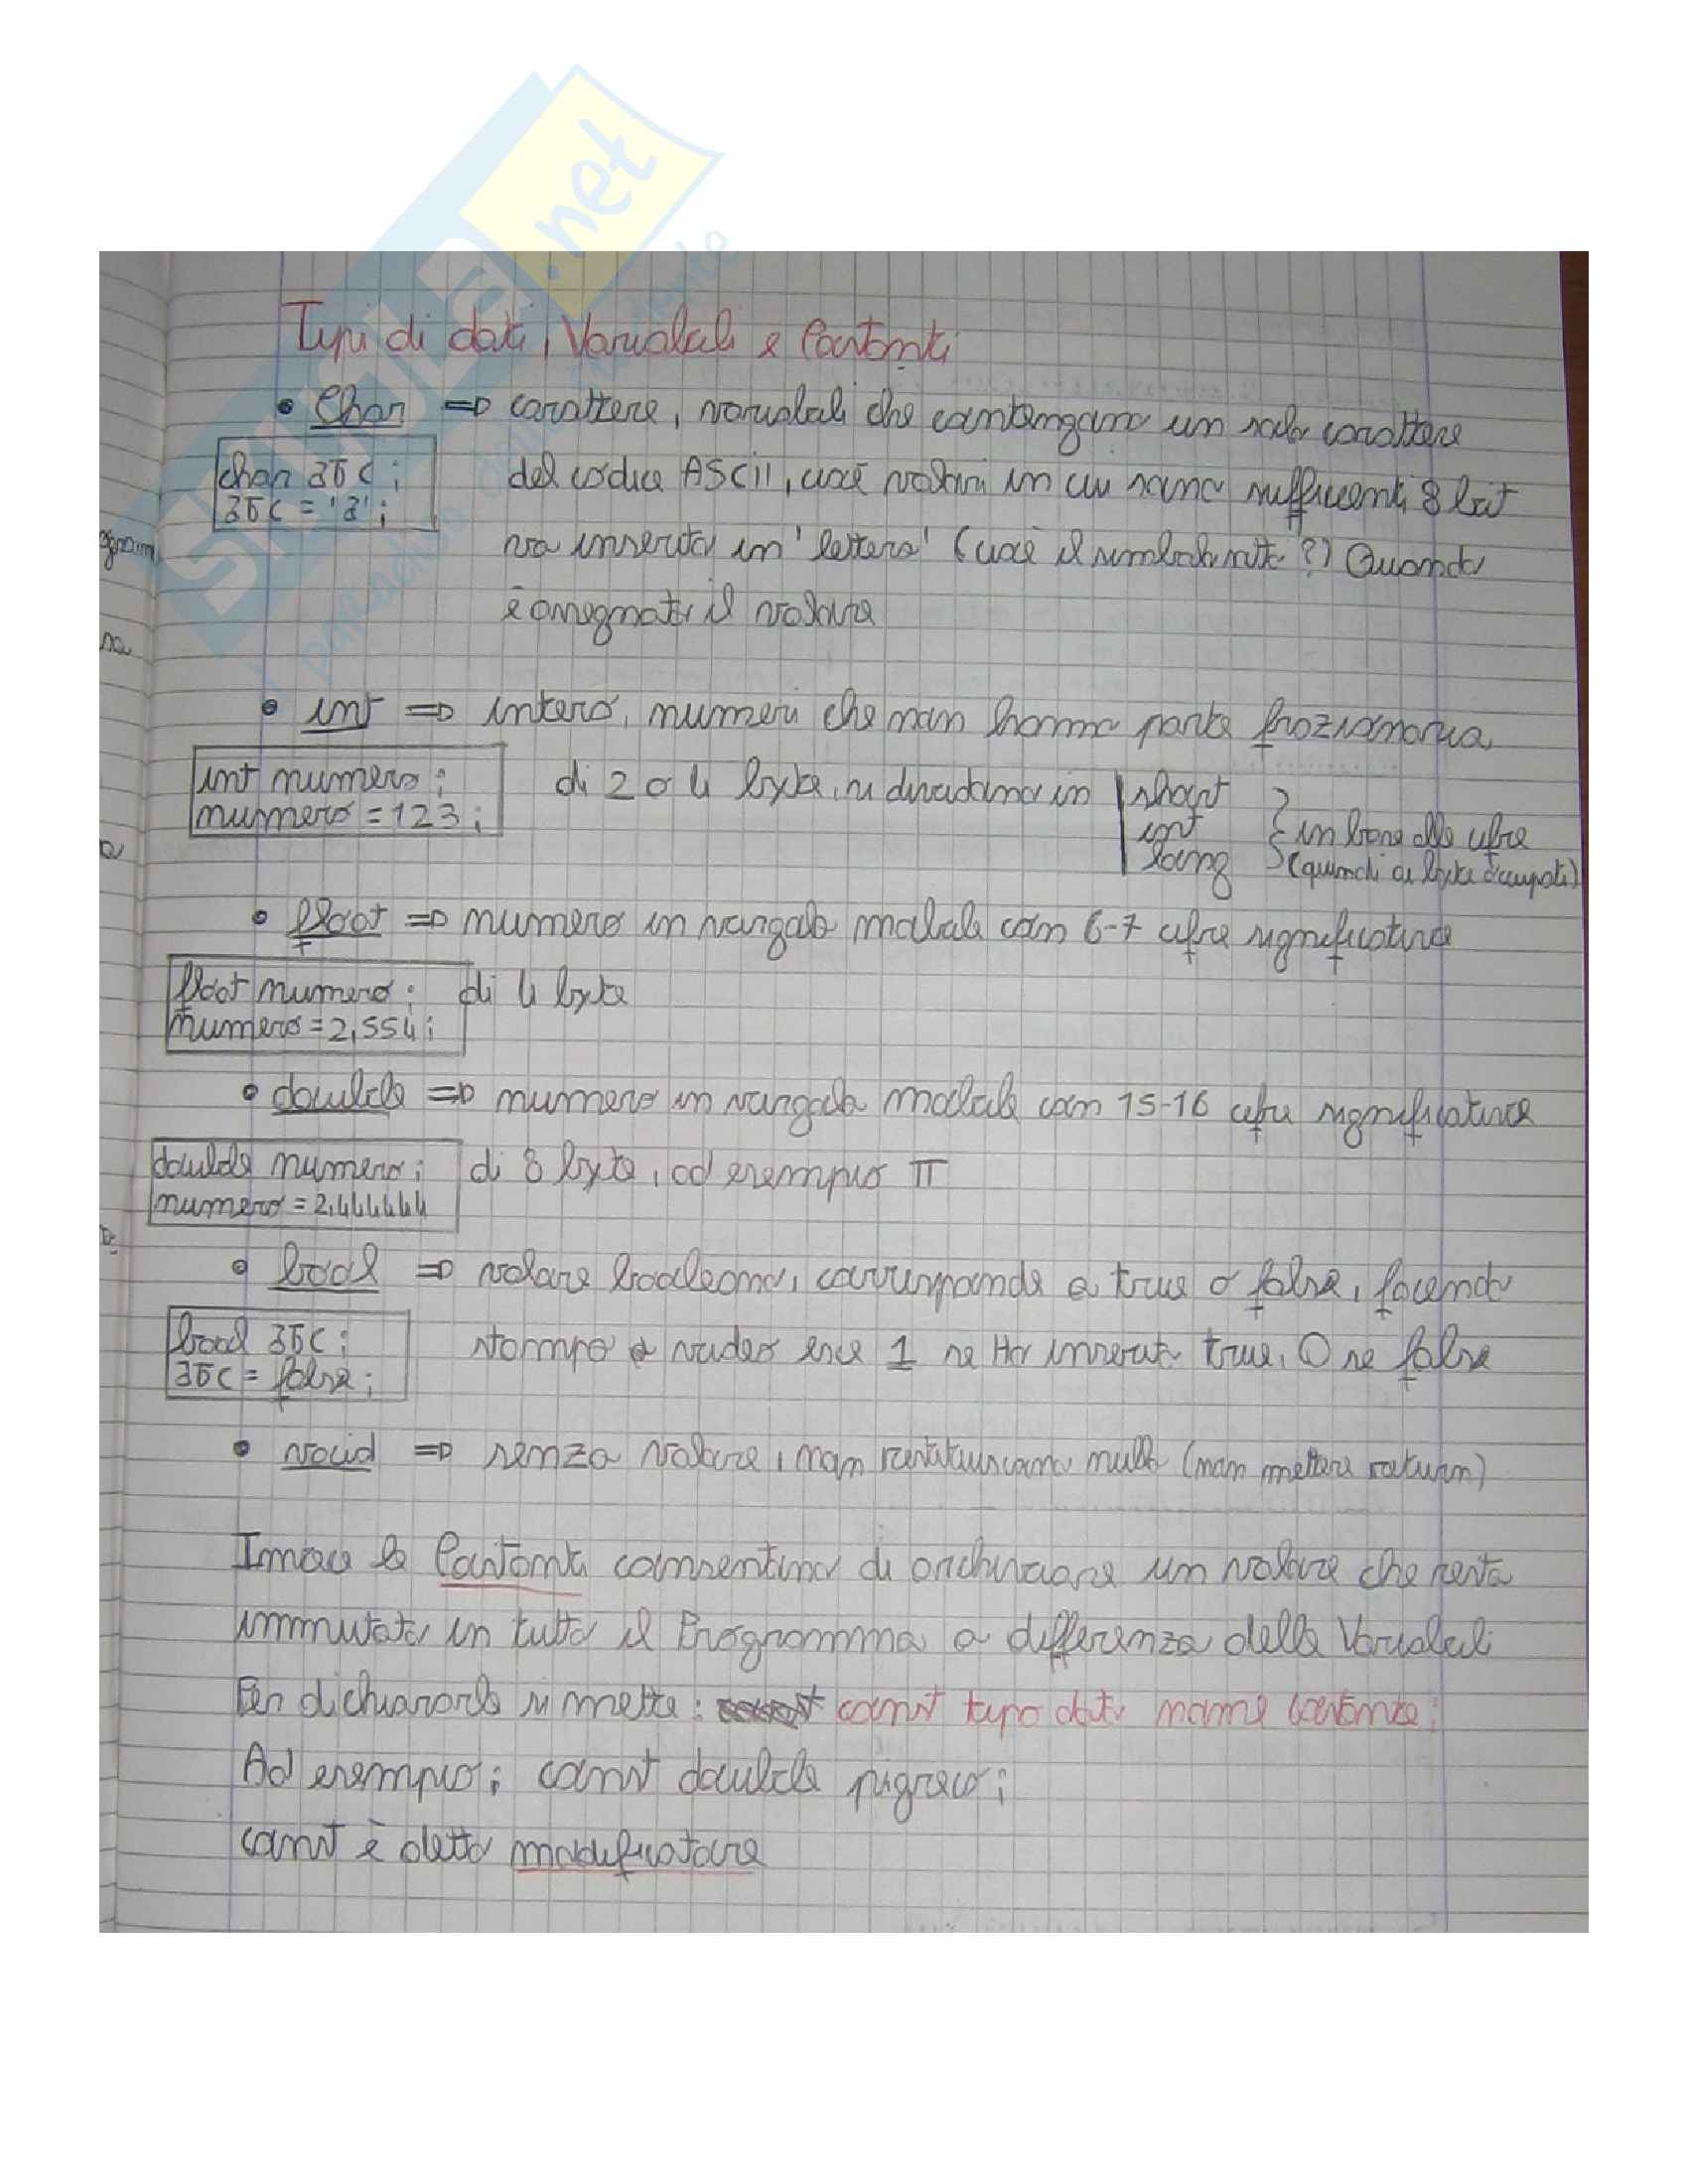 SKUOLA.net
Tipi di dati, Variabili e Costanti
• Char => carattere, variabili che contengano un solo carattere
char 3IC;
3IC = '3';
del codice ASCII, cioè valori in cui sono sufficenti 8 bit
va inserito in 'lettera' ( cioè il simbolo ?) Quando
è assegnato il valore
• int => intero, numeri che non hanno parte frazionaria
int numero;
numero = 123;
di 2 o 4 byte, si dividono in | short
int
long
in base alle cifre
(quindi ai byte occupati)
• float => numero in virgola mobile con 6-7 cifre significative
float numero;
numero = 2,554;
di 4 byte
• double => numero in virgola mobile con 15-16 cifre significative
double numero;
numero = 2,444444
di 8 byte, ad esempio π
• bool => valore booleano, corrisponde a true o false, facendo
bool 3IC;
3IC = false;
stampa a video esce 1 se Ho inserito true, 0 se false
• void => senza valore, non restituiscono nulla (non mettere return)
Invece le Costanti consentino di archiviare un valore che resta
immutato in tutto il Programma a differenza delle Variabili
Per dichiararle si mette: const tipo dato nome costante;
Ad esempio; const double pigreco;
const è detto modificatore